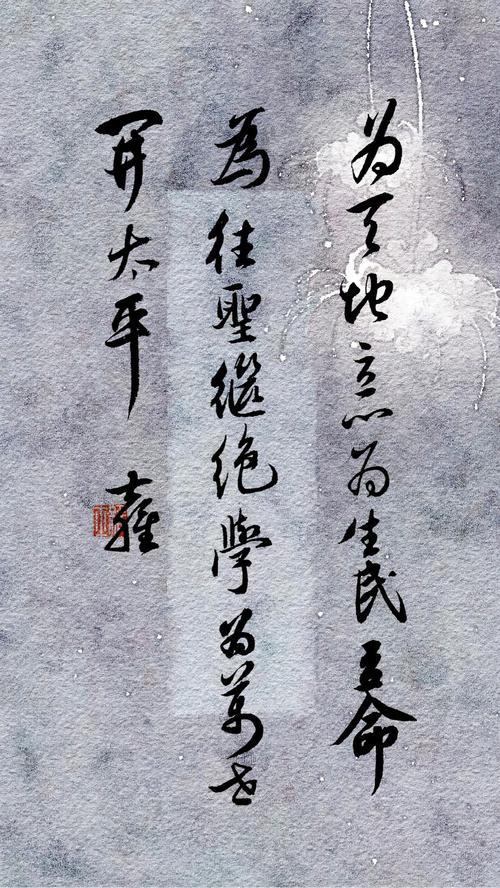 为天地立心为生民立命
為往聖繼絶學为萬世
開太平